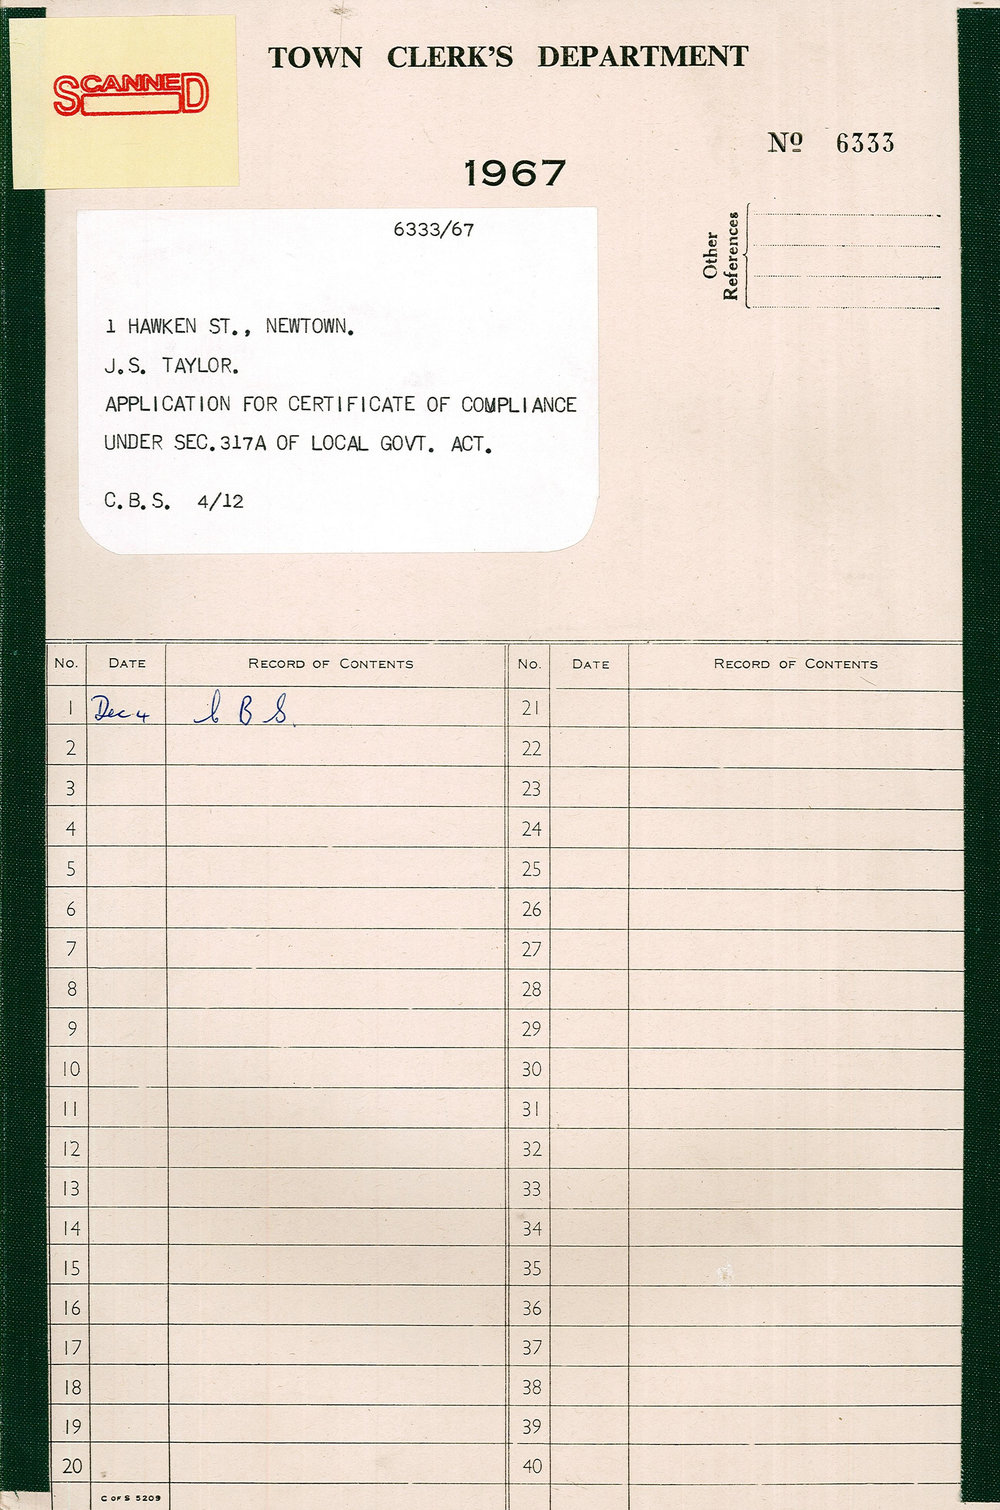 SCANNED
TOWN CLERK'S DEPARTMENT
Nº 6333
1967
Other
References
6333/67
1 HAWKEN ST., NEWTOWN.
J.S. TAYLOR.
APPLICATION FOR CERTIFICATE OF COMPLIANCE
UNDER SEC.317A OF LOCAL GOVT. ACT.
C.B.S. 4/12
No. DATE RECORD OF CONTENTS No. DATE RECORD OF CONTENTS
1 Dec 4 C B S. 21
2 22
3 23
4 24
5 25
6 26
7 27
8 28
9 29
10 30
11 31
12 32
13 33
14 34
15 35
16 36
17 37
18 38
19 39
20 40
C OF S 5209